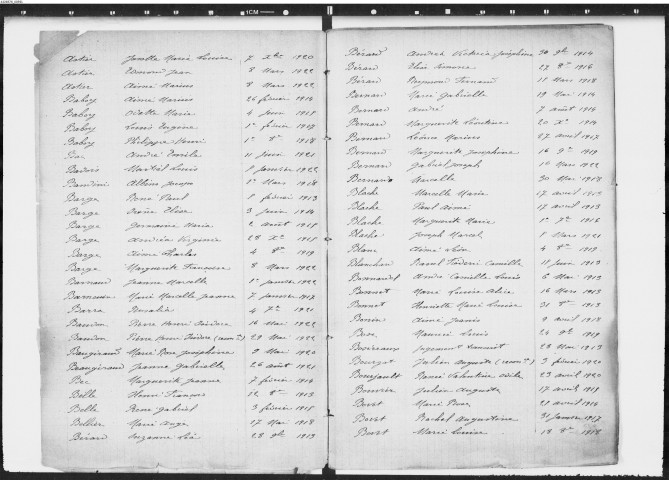 1CM
Astier Marie Louise 7 Xbre 1920
Astier Edmond Jean 3 Mars 1922
Astier Aimé Marius 8 Mars 1922
Baboy Aimé Marius 26 février 1914
Baboy Odette Maria 4 Juin 1915
Baboy Louis Eugène 1er février 1917
Baboy Philippe Henri 1er 8bre 1918
André Emile 11 Juin 1921
Martial Louis 1 Janvier 1922
Baudin 1er Mars 1918
Barge René Paul 1 février 1913
Barge 3 Juin 1914
Barge Germaine Maria 2 août 1915
Barge Andréa Virginie 28 Xbre 1915
Barge Aimé Charles 4 8bre 1919
Barge Marguerite Françoise 8 Mars 1922
Barnaud Jeanne Marcelle 1er Janvier 1922
Marie Marcelle Jeanne 7 Janvier 1917
Barra 4 7bre 1921
Baudon Pierre Henri 16 Mai 1922
Baudon 29 Mai 1922
Beaugiraud Marie Rose Joséphine 9 Mai 1920
Beaugiraud Jeanne Gabrielle 26 août 1921
Bec Marguerite Jeanne 7 février 1914
Belle Henri François 12 8bre 1913
Belle René Gabriel 3 février 1915
Bellier Marie Ange 17 Mai 1918
Bérard Suzanne Léa 28 9bre 1913
Bérard Andréa Victoria Joséphine 30 9bre 1914
Bérard 27 8bre 1916
Bérard Raymond Fernand 11 Mars 1918
Bernard Marie Gabrielle 19 Mai 1914
Bernard André 7 août 1914
Bernard Marguerite 20 Xbre 1914
Bernard Léonie 27 avril 1917
Bernard Marguerite Joséphine 16 9bre 1919
Bernard Gabriel Joseph 16 Mars 1922
Marcelle 30 Mai 1918
Blache Marcelle Maria 17 avril 1913
Blache Paul Aimé 17 avril 1913
Blache Marguerite Marie 1er 7bre 1916
Blache Joseph Marcel 1 Mars 1921
Blanc Aimé Léon 4 8bre 1919
Blanchard Raoul Frédéric Camille 11 Juin 1913
Bonnardel André Camille Louis 6 Mai 1913
Bonnet Marie Louise Alice 16 Mars 1913
Bonnet Henriette Marie Louise 31 8bre 1913
Aimé 9 avril 1918
Bosc Maurice Louis 24 9bre 1919
28 Mai 1913
Bourget Julien Auguste 3 février 1920
Valentine Odile 23 avril 1920
Julien Auguste 17 avril 1919
Bovet Marie Rose 21 avril 1914
Bovet Rachel Augustine 31 Janvier 1917
Bovet Marie Louise 18 8bre 1918